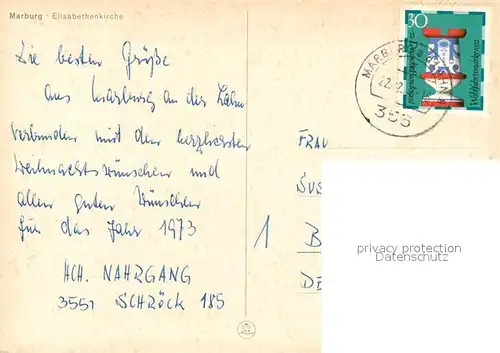 Marburg · Elisabethenkirche
Die besten Grüße
aus Marburg an der Lahn
verbunden mit den herzlichsten
Weihnachtswünschen und
allen guten Wünschen
für das Jahr 1973
HCH. NAHRGANG
3551 SCHRÖCK 185
30
Deutsche Bundespost
Wohlfahrtsmarke
MARBURG
22.12
355
FRAU
SUS
1 B
DE
privacy protection
oldthing.de